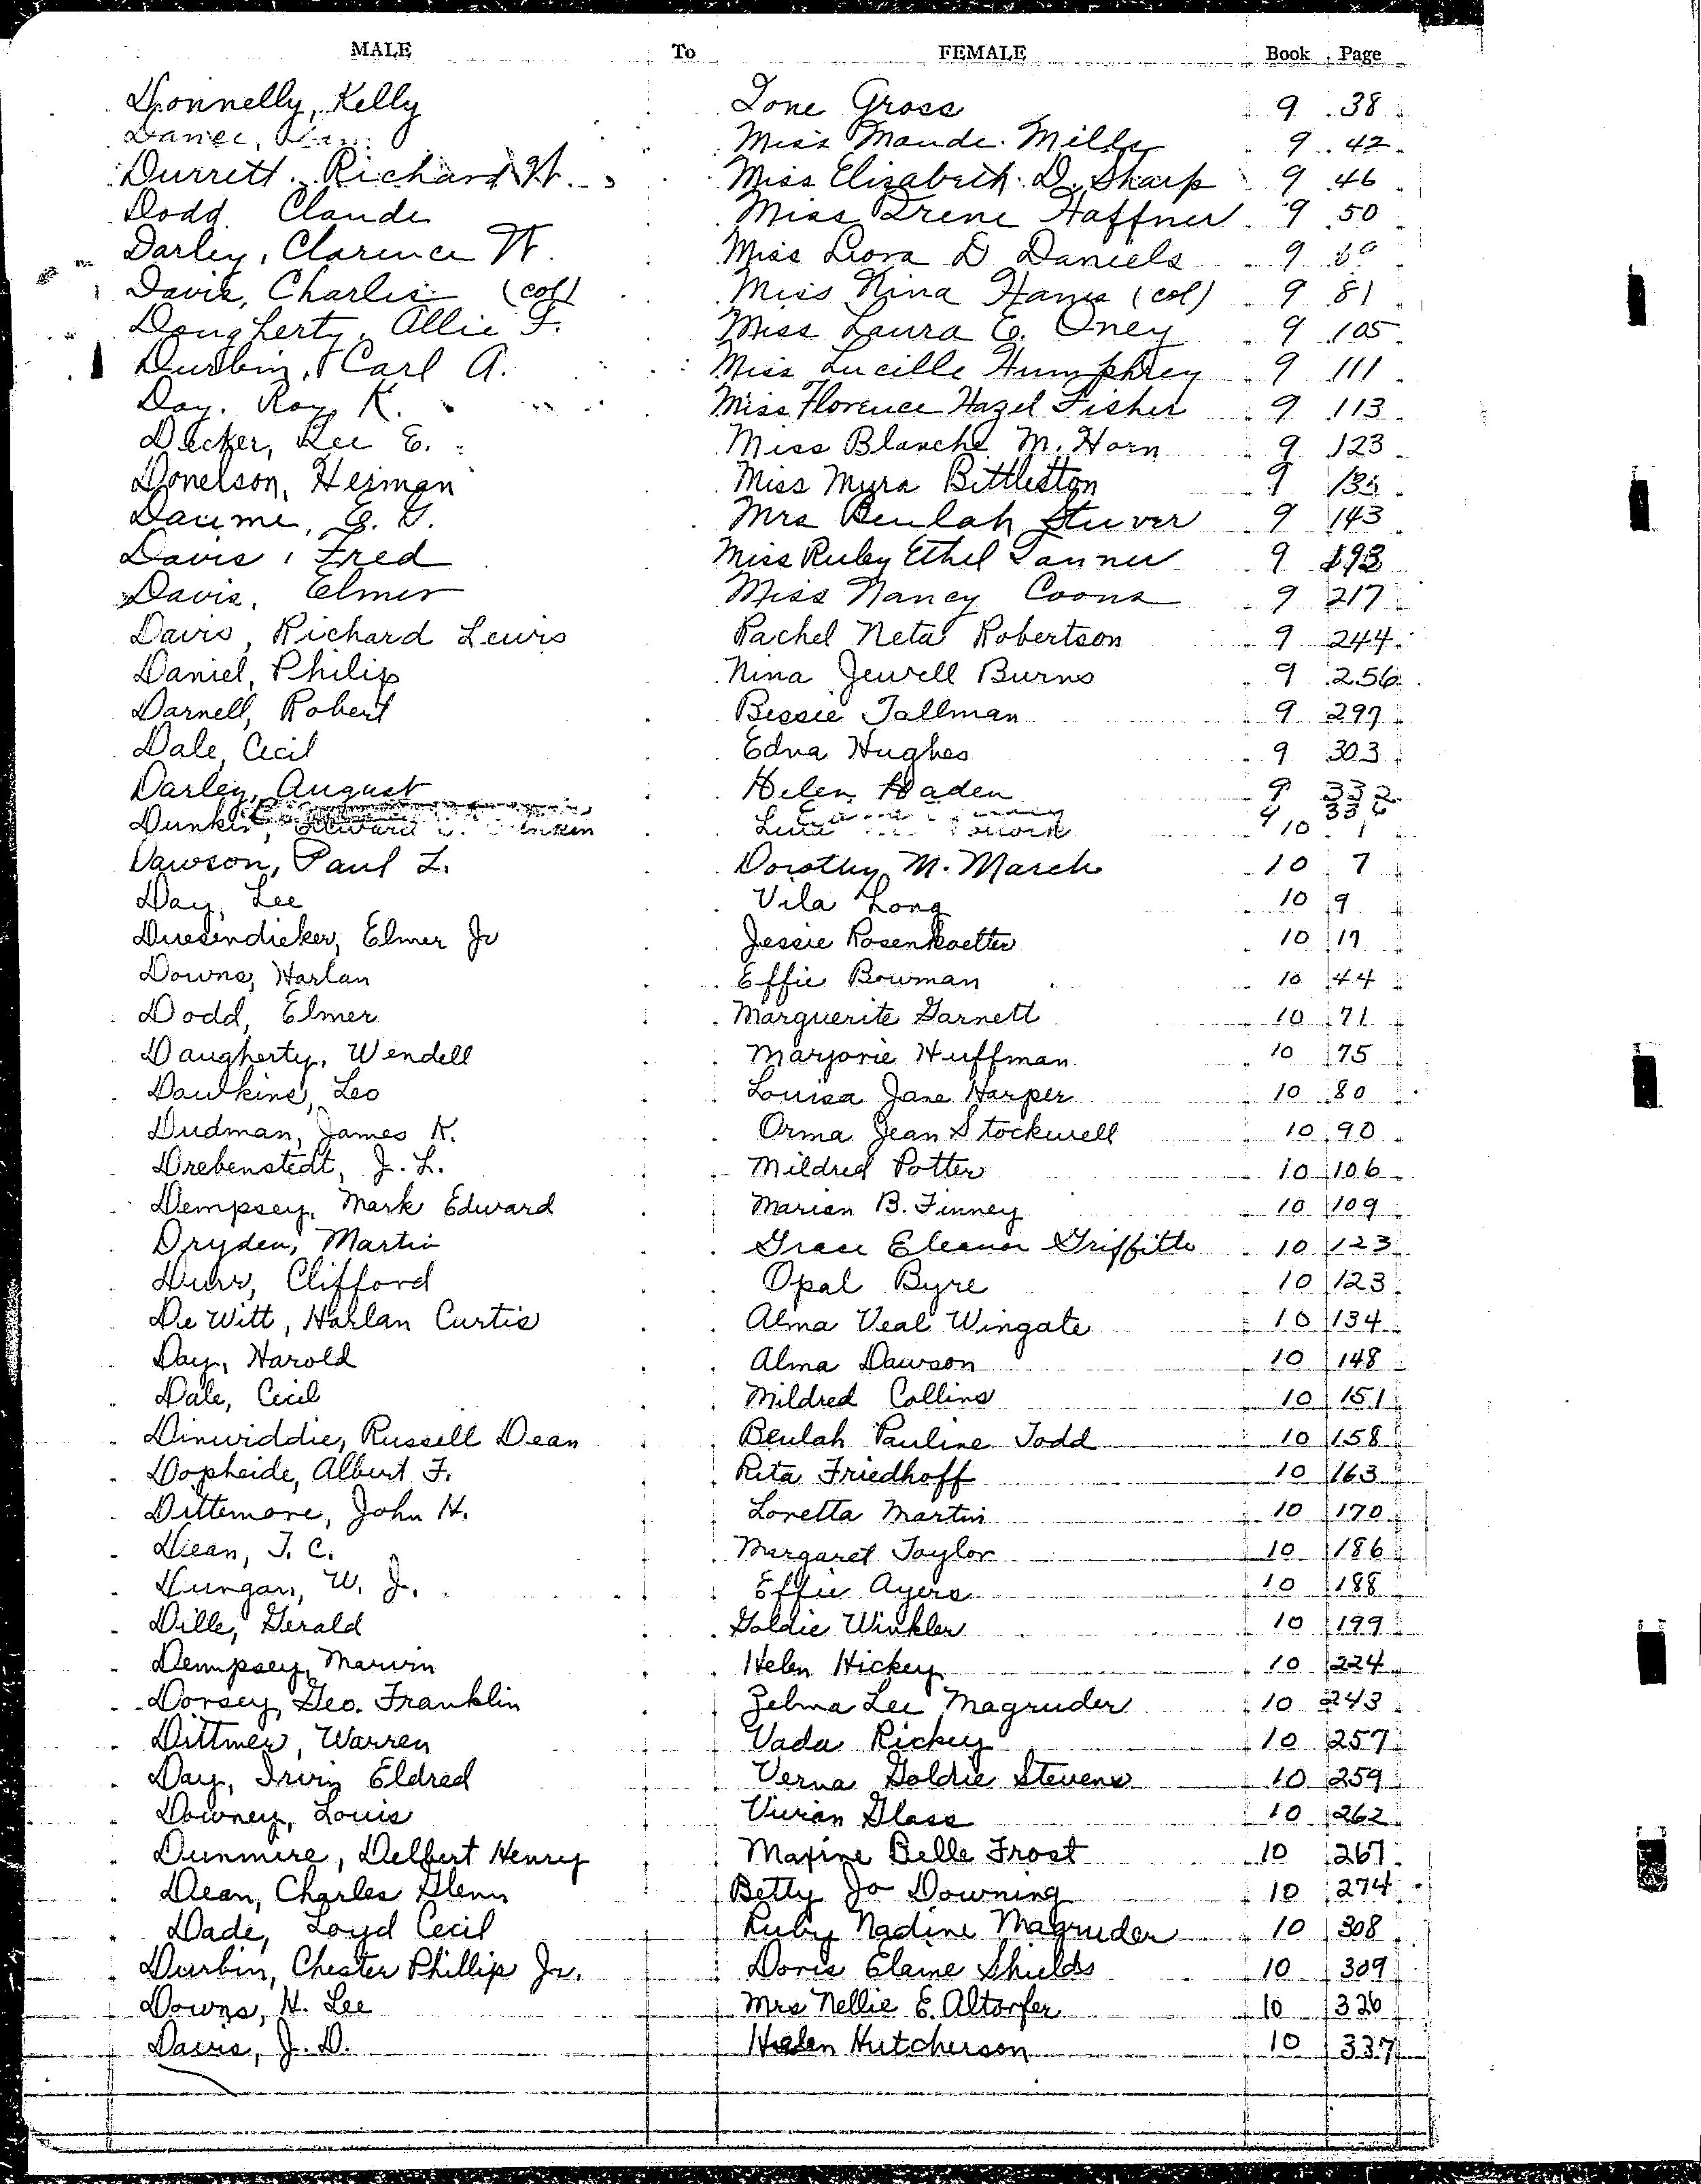 MALE To FEMALE Book Page
Donnelly, Kelly Ione Gross 9 38
Miss Maude Mills 9 42
Durrett, Richard W. Miss Elizabeth D. Sharp 9 46
Dodd Claude Miss Irene Haffner 9 50
Darley, Clarence W. Miss Leora D Daniels 9
Davis, Charlie (col) Miss Nina (col) 9 81
Dougherty, Allie F. Miss Laura E. Oney 9 105
Durbin, Carl A. Miss Lucille Humphrey 9 111
Day. Roy K. Miss Florence Hazel Fisher 9 113
Decker, Lee E. Miss Blanche M. Horn 9 123
Donelson, Herman Miss Myra Bittleston 9
Daume, E. G. Mrs Beulah Stuver 9 143
Davis, Fred Miss Ruby Ethel Tanner 9 193
Davis, Elmer Miss Nancy Coons 9 217
Davis, Richard Lewis Rachel Neta Robertson 9 244
Daniel, Philip Nina Jewell Burns 9 256
Darnell, Robert Bessie Tallman 9 297
Dale, Cecil Edna Hughes 9 303
Darley, August Helen Haden 9 332
9 336
10 1
Dawson, Paul L. Dorothy M. March 10 7
Day, Lee Vila Long 10 9
Duesendieker, Elmer Jr Jessie Rosenkoetter 10 17
Downs, Harlan Effie Bowman 10 44
Dodd, Elmer Marguerite Garnett 10 71
Daugherty, Wendell Marjorie Huffman 10 75
Dawkins, Leo Louisa Jane Harper 10 80
Dudman, James K. Orma Jean Stockwell 10 90
Drebenstedt, J. L. Mildred Potter 10 106
Dempsey, Mark Edward Marian B. Finney 10 109
Dryden, Martin Grace Eleanor Griffitts 10 123
Durr, Clifford Opal Byre 10 123
De Witt, Harlan Curtis Alma Veal Wingate 10 134
Day, Harold Alma Dawson 10 148
Dale, Cecil Mildred Collins 10 151
Dinwiddie, Russell Dean Beulah Pauline Todd 10 158
Dopheide, Albert F. Rita Friedhoff 10 163
Dittemore, John H. Loretta Martin 10 170
Dean, T. C. Margaret Taylor 10 186
Dungan, W. J. Effie Ayers 10 188
Dille, Gerald Goldie Winkler 10 199
Dempsey, Marvin Helen Hickey 10 224
Dorsey, Geo. Franklin Zelma Lee Magruder 10 243
Dittmer, Warren Vada Rickey 10 257
Day, Irvin Eldred Verna Goldie Stevens 10 259
Downey, Louis Vivian Glass 10 262
Dunmire, Delbert Henry Maxine Belle Frost 10 267
Dean, Charles Glenn Betty Jo Downing 10 274
Dade, Loyd Cecil Ruby Nadine Magruder 10 308
Durbin, Chester Phillip Jr. Doris Elaine Shields 10 309
Downs, H. Lee Mrs Nellie E. Altorfer 10 326
Davis, J. D. Helen Hutcherson 10 337